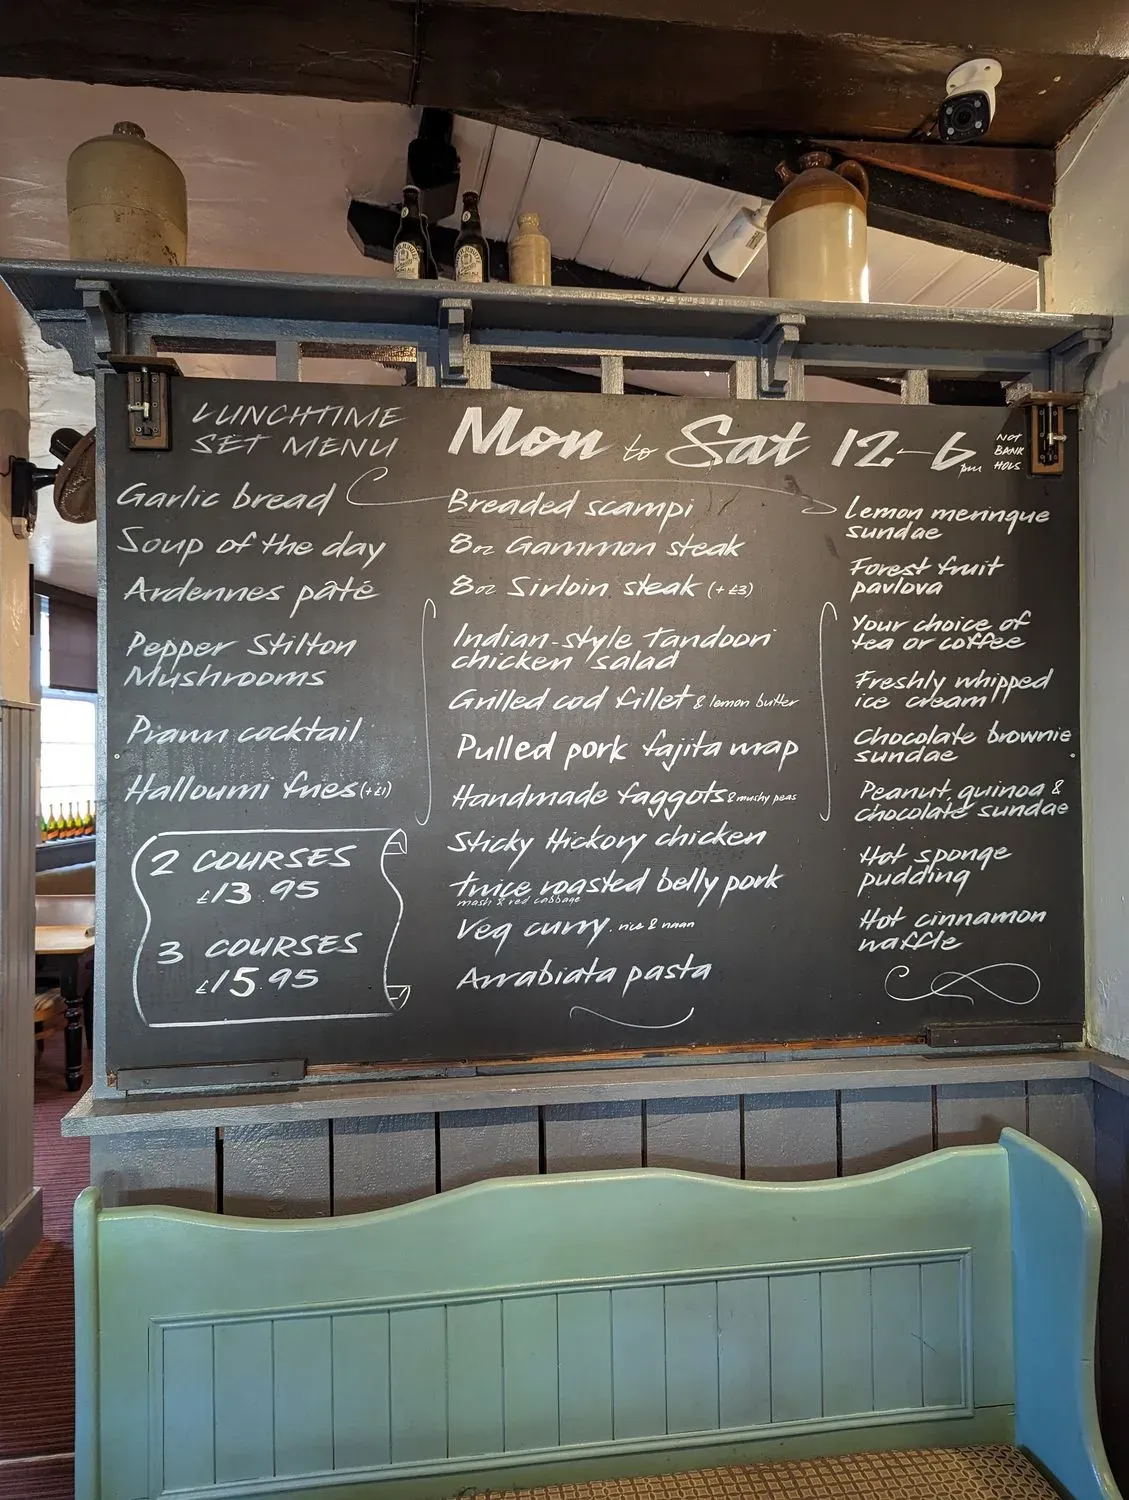 LUNCHTIME
SET MENU
Mon to Sat 12-6pm
NOT
BANK
HOLS
Garlic bread
Soup of the day
Ardennes pâté
Pepper Stilton
Mushrooms
Prawn cocktail
Halloumi fries (+£1)
2 COURSES
£13.95
3 COURSES
£15.95
Breaded scampi
8oz Gammon steak
8oz Sirloin steak (+£3)
Indian-style Tandoori
chicken salad
Grilled cod fillet & lemon butter
Pulled pork fajita wrap
Handmade faggots & mushy peas
Sticky Hickory chicken
Twice roasted belly pork
mash & red cabbage
Veg curry. rice & naan
Arrabiata pasta
Lemon meringue
sundae
Forest fruit
pavlova
Your choice of
tea or coffee
Freshly whipped
ice cream
Chocolate brownie
sundae
Peanut, quinoa &
chocolate sundae
Hot sponge
pudding
Hot cinnamon
waffle